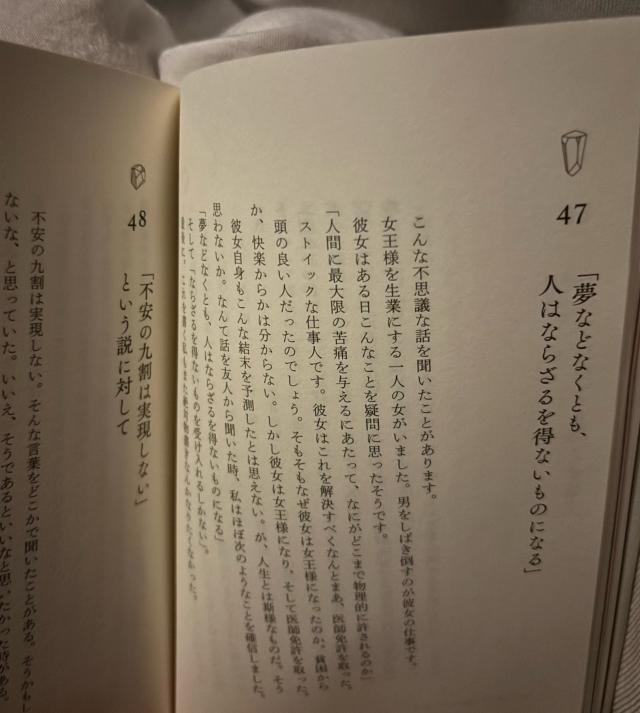 47
「夢などなくとも、
人はならざるを得ないものになる」
こんな不思議な話を聞いたことがあります。
女王様を生業にする一人の女がいました。男をしばき倒すのが彼女の仕事です。
彼女はある日こんなことを疑問に思ったそうです。
「人間に最大限の苦痛を与えるにあたって、なにがどこまで物理的に許されるのか」
ストイックな仕事人です。彼女はこれを解決すべくなんとまあ、医師免許を取った。
頭の良い人だったのでしょう。そもそもなぜ彼女は女王様になったのか。貧困から
か、快楽からかは分からない。しかし彼女は女王様になり、そして医師免許を取った。
彼女自身もこんな結末を予測したとは思えない。が、人生とは斯様なものだ。そう
思わないか。なんて話を友人から聞いた時、私はほぼ次のようなことを確信しました。
「夢などなくとも、人はならざるを得ないものになる」
そして「ならざるを得ないものを受け入れるしかない」。
48
「不安の九割は実現しない」
という説に対して
不安の九割は実現しない。そんな言葉をどこかで聞いたことがある。そうかもし
ないな、と思っていた。いいえ、そうであるといいなと思いたかった時がある。